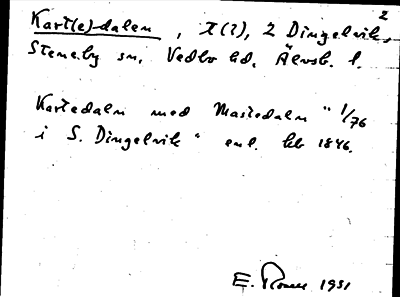 2
Kart(e)dalen, T(?), 2 Dingelvik,
Steneby sn, Vedbo hd, Älvsb. l.
Kartedalen med Mastedalen "1/76
i S. Dingelvik" enl. hb 1846.
E. 1951